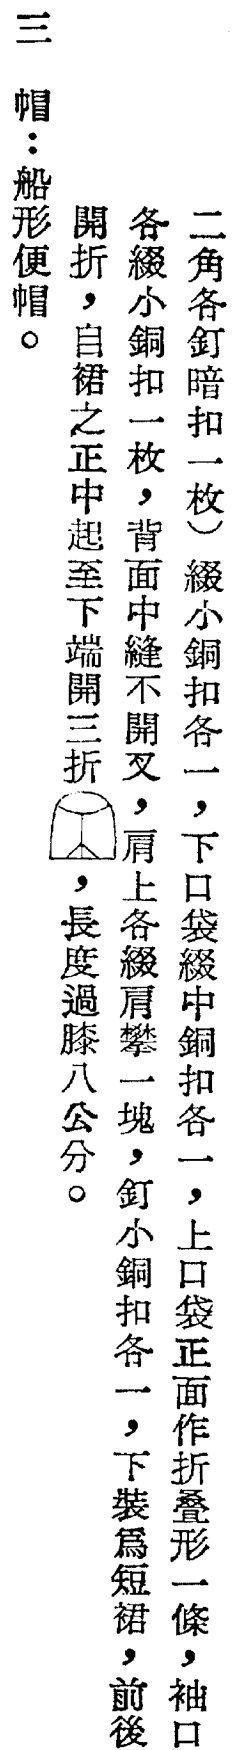 二角各釘暗扣一枚）綴小銅扣各一，下口袋綴中銅扣各一，上口袋正面作折疊形一條，袖口
各綴小銅扣一枚，背面中縫不開叉，肩上各綴肩攀一塊，釘小銅扣各一，下裝爲短裙，前後
開折，自裙之正中起至下端開三折，長度過膝八公分。
三　帽：船形便帽。